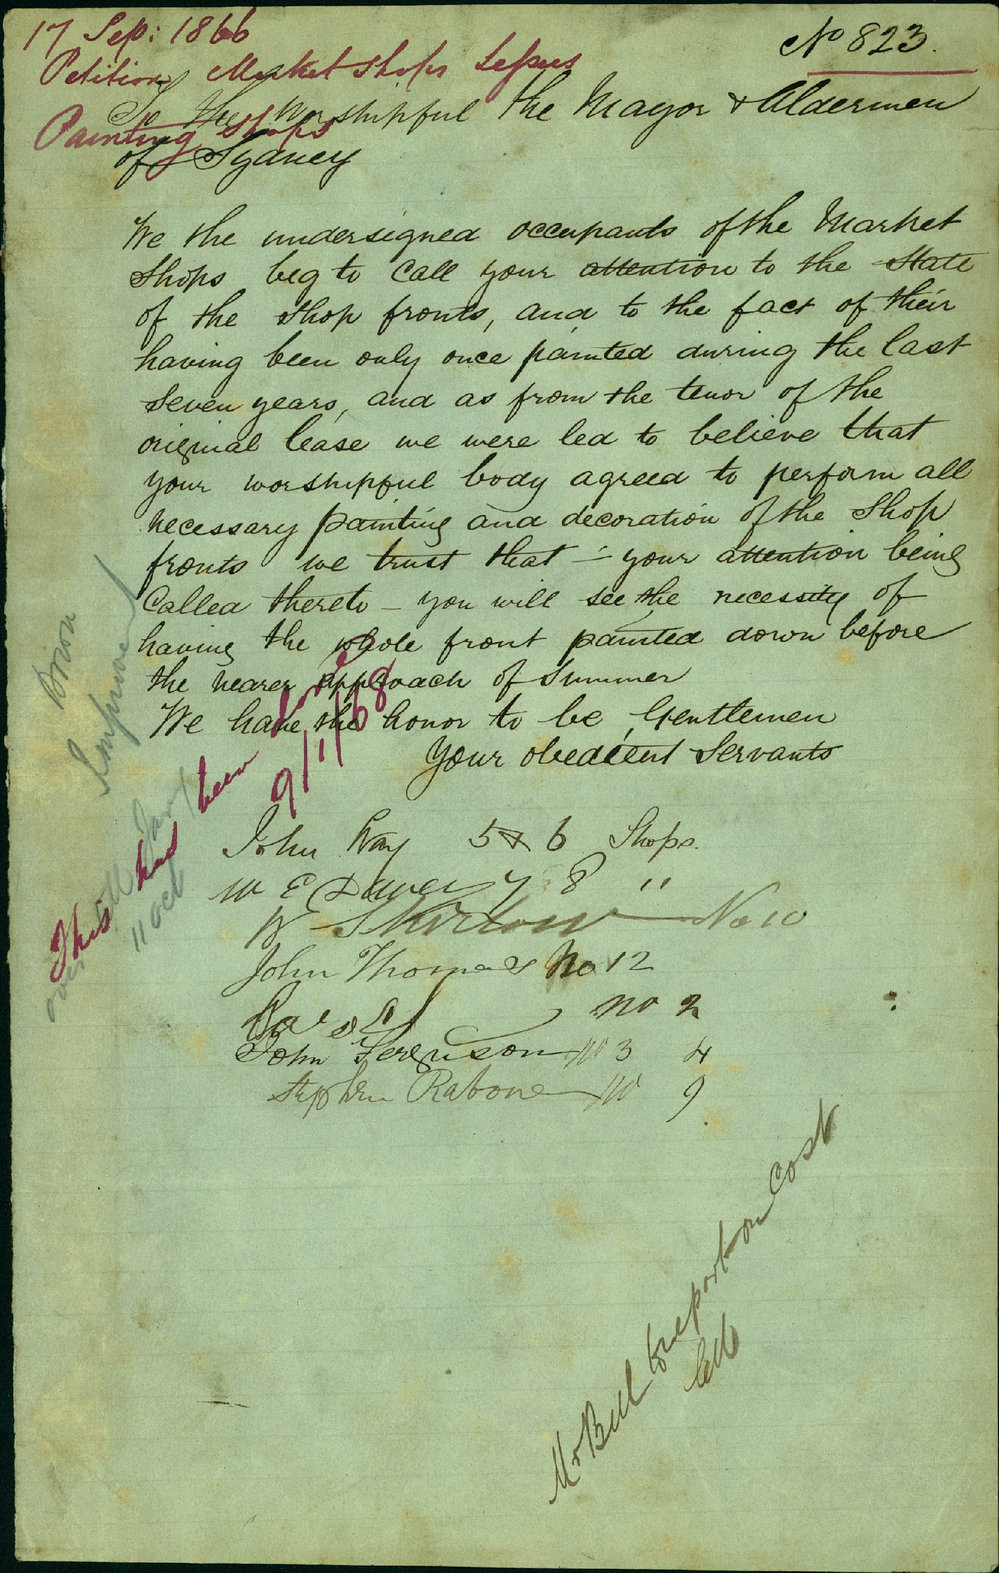 17 Sep: 1866
No 823.
Petition Market Shops Lessees
Painting Shops
To the Worshipful the Mayor & Aldermen
of Sydney
We the undersigned occupants of the Market
Shops beg to call your attention to the State
of the shop fronts, and to the fact of their
having been only once painted during the last
seven years, and as from the tenor of the
original lease we were led to believe that
your worshipful body agreed to perform all
necessary painting and decoration of the Shop
fronts we trust that - your attention being
called thereto - you will see the necessity of
having the whole front painted down before
the nearer approach of summer
We have the honor to be, Gentlemen
Your obedient Servants
John Way 5 & 6 Shops.
W E 7 8 "
W No 10
John Thomas No 12
No 2
John Ferguson No 3 4
Stephen Rabone No 9
This had been done
9/11/68
11 Oct
Mr Bell to report on Cost